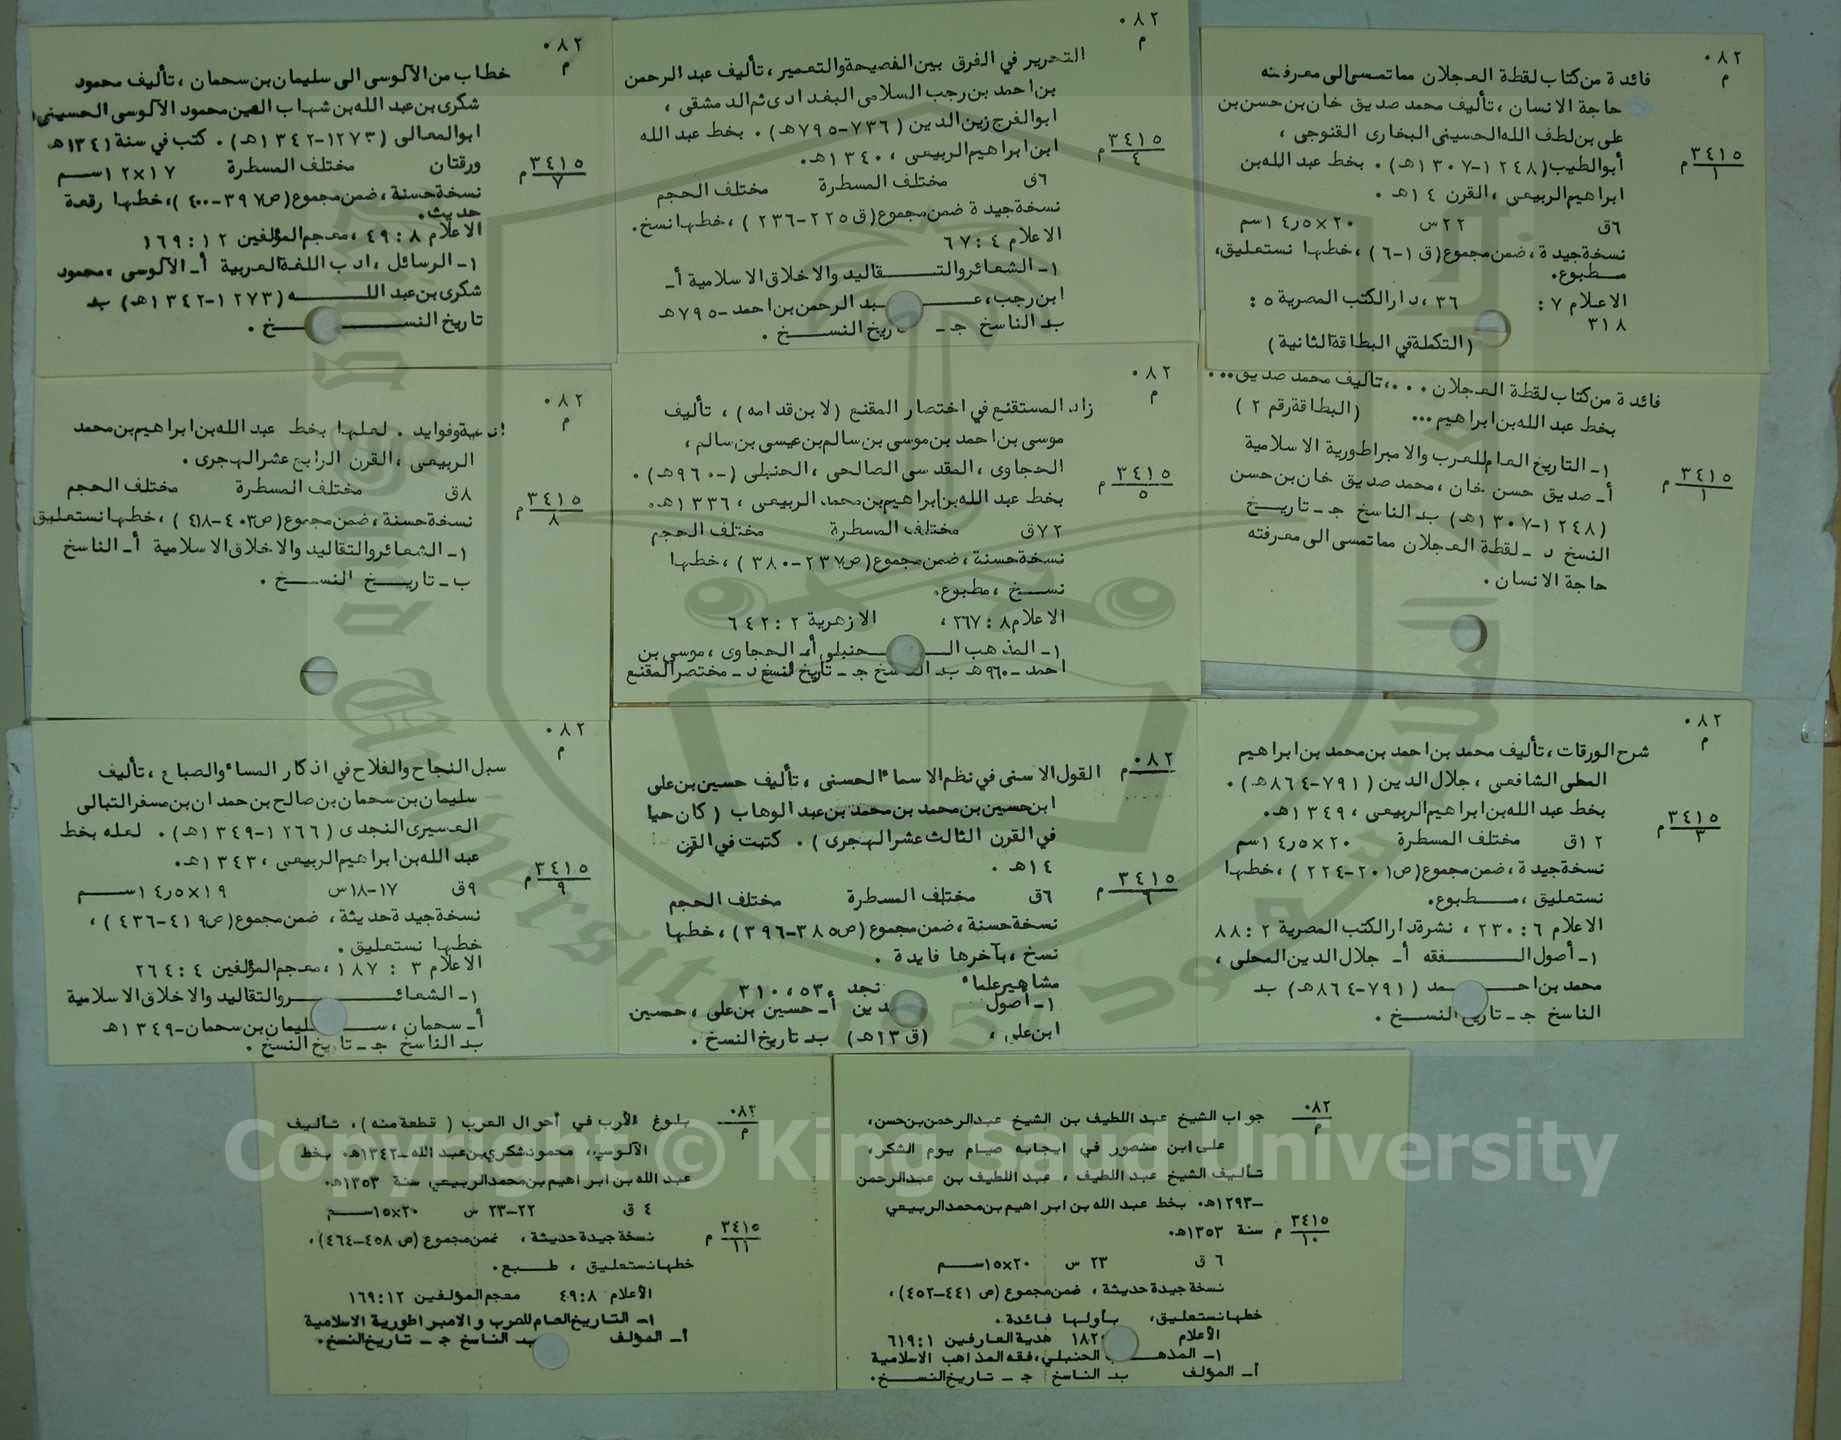 ٠٨٢
م
٣٤١٥/١ م
فائدة من كتاب لقطة العجلان مما تمس الى معرفته
حاجة الانسان ، تأليف محمد صديق خان بن حسن بن
على بن لطف الله الحسيني البخارى القنوجى ،
أبو الطيب (١٢٤٨-١٣٠٧هـ) . بخط عبد الله بن
ابراهيم الربيعى ، القرن ١٤هـ .
٦ق ٢٢س ٢٠×١٤٫٥سم
نسخة جيدة ، ضمن مجموع (ق ١-٦) ، خطها نستعليق،
مطبوع.
الاعلام ٧ : ٣٦ ، دار الكتب المصرية ٥ :
٣١٨
(التكملة في البطاقة الثانية)
فائدة من كتاب لقطة العجلان ...، تأليف محمد صديق...
بخط عبد الله بن ابراهيم ... (البطاقة رقم ٢ )
٣٤١٥/١ م
١- التاريخ العام للعرب والامبراطورية الاسلامية
أ- صديق حسن خان ، محمد صديق خان بن حسن
(١٢٤٨-١٣٠٧هـ) ب- الناسخ ج- تاريخ
النسخ د - لقطة العجلان مما تمس الى معرفته
حاجة الانسان .
٠٨٢
م
٣٤١٥/٣ م
شرح الورقات ، تأليف محمد بن احمد بن محمد بن ابراهيم
المحلى الشافعى ، جلال الدين (٧٩١-٨٦٤هـ) .
بخط عبد الله بن ابراهيم الربيعى ، ١٣٤٩هـ.
١٢ق مختلف المسطرة ٢٠×١٤٫٥سم
نسخة جيدة ، ضمن مجموع (ص٢٠١-٢٢٤ ) ، خطها
نستعليق ، مطبوع.
الاعلام ٦ : ٢٣٠ ، نشرة دار الكتب المصرية ٢ : ٨٨
١- أصول الفقه أ- جلال الدين المحلى ،
محمد بن احمد (٧٩١-٨٦٤هـ) ب-
الناسخ ج- تاريخ النسخ .
٠٨٢
م
٣٤١٥/٤ م
التحرير في الفرق بين الفصيحة والتعمير ، تأليف عبد الرحمن
بن احمد بن رجب السلامى البغدادى ثم الدمشقى ،
ابو الفرج زين الدين (٧٣٦-٧٩٥هـ) . بخط عبد الله
ابن ابراهيم الربيعى ، ١٣٤٠هـ.
٦ق مختلف المسطرة مختلف الحجم
نسخة جيدة ضمن مجموع (ق ٢٢٥-٢٣٦ ) ، خطها نسخ.
الاعلام ٤ : ٦٧
١- الشعائر والتقاليد والاخلاق الاسلامية أ-
ابن رجب، عبد الرحمن بن احمد -٧٩٥هـ
ب- الناسخ ج- تاريخ النسخ .
٠٨٢
م
٣٤١٥/٥ م
زاد المستقنع في اختصار المقنع (لابن قدامه) ، تأليف
موسى بن احمد بن موسى بن سالم بن عيسى بن سالم ،
الحجاوى ، المقدسى الصالحى ، الحنبلى (-٩٦٠هـ) .
بخط عبد الله بن ابراهيم بن محمد الربيعى ، ١٣٣٦هـ.
٧٢ق مختلف المسطرة مختلف الحجم
نسخة حسنة ، ضمن مجموع (ص٢٣٧-٣٨٠ ) ، خطها
نسخ ، مطبوع.
الاعلام ٨ : ٢٦٧ ، الازهرية ٢ : ٦٤٢
١- المذهب الحنبلى أ- الحجاوى ، موسى بن
احمد -٩٦٠هـ ب- الناسخ ج- تاريخ النسخ د- مختصر المقنع
٠٨٢
م
٣٤١٥/٦ م
القول الاسنى في نظم الاسماء الحسنى ، تأليف حسين بن على
ابن حسين بن محمد بن محمد بن عبد الوهاب ( كان حيا
في القرن الثالث عشر الهجرى ) . كتبت في القرن
١٤هـ .
٦ق مختلف المسطرة مختلف الحجم
نسخة حسنة ، ضمن مجموع (ص٣٨٥-٣٩٦ ) ، خطها
نسخ ، بآخرها فايدة .
مشاهير علماء نجد ٥٣ ، ٣١٠
١- أصول الدين أ- حسين بن على ، حسين
ابن على ، (ق ١٣هـ) ب- تاريخ النسخ .
٠٨٢
م
٣٤١٥/٧ م
خطاب من الآلوسى الى سليمان بن سحمان ، تأليف محمود
شكرى بن عبد الله بن شهاب الدين محمود الآلوسى الحسينى،
ابو المعالى (١٢٧٣-١٣٤٢هـ) . كتب في سنة ١٣٤١هـ
ورقتان مختلف المسطرة ١٧×١٢سم
نسخة حسنة ، ضمن مجموع (ص٣٩٧-٤٠٠ ) ، خطها رقعة
حديث.
الاعلام ٨ : ٤٩ ، معجم المؤلفين ١٢ : ١٦٩
١- الرسائل ، ادب اللغة العربية أ- الآلوسى ، محمود
شكرى بن عبد الله (١٢٧٣-١٣٤٢هـ) ب-
تاريخ النسخ .
٠٨٢
م
٣٤١٥/٨ م
ادعية وفوايد . لعلها بخط عبد الله بن ابراهيم بن محمد
الربيعى ، القرن الرابع عشر الهجرى .
٨ق مختلف المسطرة مختلف الحجم
نسخة حسنة ، ضمن مجموع (ص٤٠٣-٤١٨ ) ، خطها نستعليق
١- الشعائر والتقاليد والاخلاق الاسلامية أ- الناسخ
ب- تاريخ النسخ .
٠٨٢
م
٣٤١٥/٩ م
سبل النجاح والفلاح في اذكار المساء والصباح ، تأليف
سليمان بن سحمان بن صالح بن حمدان بن مسفر التبالى
العسيرى النجدى (١٢٦٦-١٣٤٩هـ) . لعله بخط
عبد الله بن ابراهيم الربيعى ، ١٣٤٣هـ.
٩ق ١٧-١٨س ١٩×١٤٫٥سم
نسخة جيدة حديثة ، ضمن مجموع (ص٤١٩-٤٣٦ ) ،
خطها نستعليق .
الاعلام ٣ : ١٨٧ ، معجم المؤلفين ٤ : ٢٦٤
١- الشعائر والتقاليد والاخلاق الاسلامية
أ- سحمان ، سليمان بن سحمان -١٣٤٩هـ
ب- الناسخ ج- تاريخ النسخ .
٠٨٢
م
٣٤١٥/١٠ م
جواب الشيخ عبد اللطيف بن الشيخ عبد الرحمن بن حسن،
على ابن منصور في ايجابه صيام يوم الشكر،
تأليف الشيخ عبد اللطيف ، عبد اللطيف بن عبد الرحمن
-١٢٩٣هـ. بخط عبد الله بن ابراهيم بن محمد الربيعي
سنة ١٣٥٣هـ.
٦ ق ٢٣ س ٢٠×١٥سم
نسخة جيدة حديثة ، ضمن مجموع (ص ٤٤١-٤٥٢) ،
خطها نستعليق، بأولها فائدة.
الأعلام ١٨٢ هدية العارفين ٦١٩:١
١- المذهب الحنبلي ، فقه المذاهب الاسلامية
أ- المؤلف ب- الناسخ ج- تاريخ النسخ.
٠٨٢
م
٣٤١٥/١١ م
بلوغ الأرب في أحوال العرب ( قطعة منه) ، تأليف
الآلوسي، محمود شكري بن عبد الله -١٣٤٢هـ. بخط
عبد الله بن ابراهيم بن محمد الربيعي سنة ١٣٥٣هـ.
٤ ق ٢٢-٢٣ س ٢٠×١٥سم
نسخة جيدة حديثة ، ضمن مجموع (ص ٤٥٨-٤٦٤) ،
خطها نستعليق ، طبع.
الأعلام ٤٩:٨ معجم المؤلفين ١٦٩:١٢
١- التاريخ العام للعرب والامبراطورية الاسلامية
أ- المؤلف ب- الناسخ ج- تاريخ النسخ.
Copyright © King Saud University